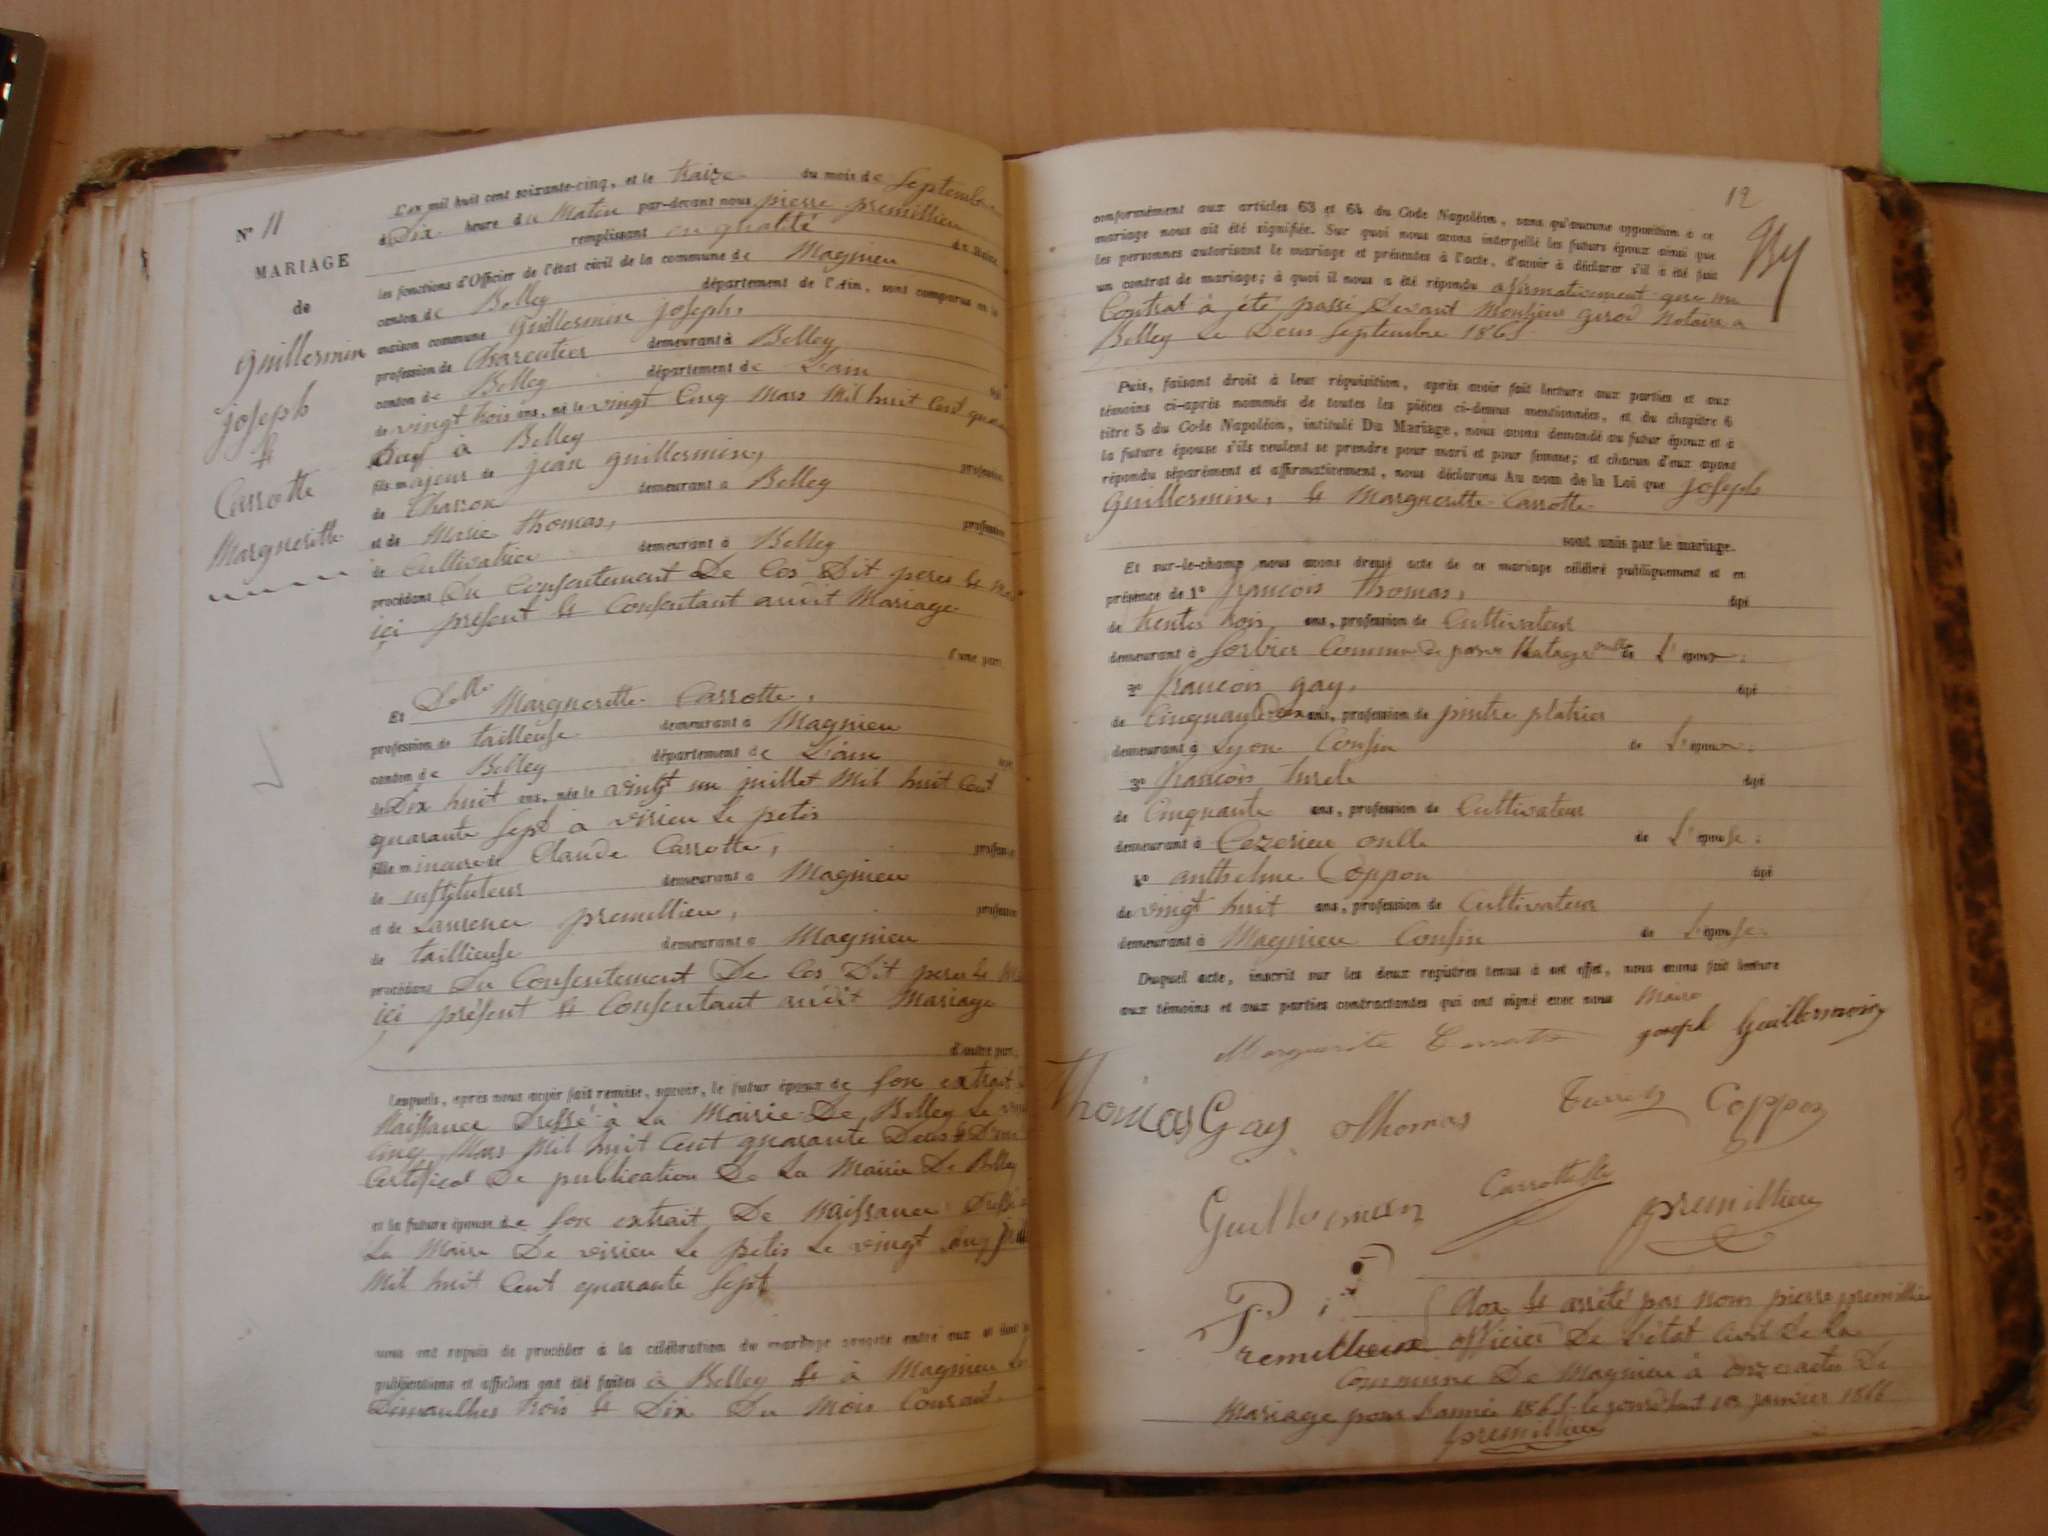 N° 11
MARIAGE
de
Guillermin
joseph
&
Carrotte
Margueritte
L'an mil huit cent soixante-cinq, et le traize du mois de Septembre
à Dix heure du Matin par-devant nous pierre premillieu
remplissant en qualité de Maire
les fonctions d'Officier de l'état civil de la commune de Magnieu
canton de Belley département de l'Ain, sont comparus en la
maison commune Guillermin joseph,
profession de Charcutier demeurant à Belley
canton de Belley département de L'ain
de vingt trois ans, né le vingt Cinq Mars Mil huit Cent quarante
Deux à Belley
fils majeur de jean guillermin, profession
de Charron demeurant à Belley
et de Marie thomas, profession
de Cultivatrice demeurant à Belley
procédant Du Consentement De Ces Dit peres &
ici présent & Consentant audit Mariage
d'une part.
Et Delle Margueritte Carrotte,
profession de tailleuse demeurant à Magnieu
canton de Belley département de L'ain
de Dix huit ans, née le vingt un juillet Mil huit Cent
quarante Sept à virieu Le petit
fille mineure de Claude Carrotte, profession
de instituteur demeurant à Magnieu
et de Laurence premillieu, profession
de taillieuse demeurant à Magnieu
procédant Du Consentement De Ces Dit peres &
ici présent & Consentant audit Mariage
d'autre part,
Lesquels, après nous avoir fait remise, savoir, le futur époux de Son extrait
Naissance Dressé à La Mairie De Belley Le
Cinq Mars Mil huit Cent quarante Deux &
Certificat De publication De La Mairie De Belley
et la future épouse de Son extrait De Naissance Dressé
La Mairie De virieu Le petit Le vingt
Mil huit Cent quarante Sept
nous ont requis de procéder à la célébration du mariage projeté entre eux et dont les
publications et affiches ont été faites à Belley & à Magnieu Les
Dimanches trois & Dix Du Mois Courant.
12
conformément aux articles 63 et 64 du Code Napoléon, sans qu'aucune opposition à ce
mariage nous ait été signifiée. Sur quoi nous avons interpellé les futurs époux ainsi que
les personnes autorisant le mariage et présentes à l'acte, d'avoir à déclarer s'il a été fait
un contrat de mariage; à quoi il nous a été répondu afirmativement que un
Contrat à été passé Devant Monsieur gerod Notaire a
Belley Le Deux Septembre 1865
Puis, faisant droit à leur réquisition, après avoir fait lecture aux parties et aux
témoins ci-après nommés de toutes les pièces ci-dessus mentionnées, et du chapitre 6
titre 5 du Code Napoléon, intitulé Du Mariage, nous avons demandé au futur époux et à
la future épouse s'ils veulent se prendre pour mari et pour femme; et chacun d'eux ayant
répondu séparément et affirmativement, nous déclarons Au nom de la Loi que joseph
Guillermin, & Margueritte Carrotte
sont unis par le mariage.
Et sur-le-champ nous avons dressé acte de ce mariage célébré publiquement et en
présence de 1° françois thomas, âgé
de trente trois, ans, profession de Cultivateur
demeurant à Sorbier Commune de oncle de L'époux;
2° françois gay, âgé
de Cinquante Deux ans, profession de pintre platrier
demeurant à Lyon Cousin de L'époux;
3° françois âgé
de Cinquante ans, profession de Cultivateur
demeurant à Cezerieu onlle de L'épouse;
4° anthelme Coppon âgé
de vingt huit ans, profession de Cultivateur
demeurant à Magnieu Cousin de L'épouse.
Duquel acte, inscrit sur les deux registres tenus à cet effet, nous avons fait lecture
aux témoins et aux parties contractantes qui ont signé avec nous Maire
Marguerite Carrotte joseph Guillermin
Thomas Gay Thomas Coppon
Guillermin Carrotte premillieu
Clos & arrêté par nous pierre premillieu
Premillieux officier De L'état Civil De La
Commune De Magnieu à onze actes De
Mariage pour L'année 1865 le jourd'huit 1er janvier 1866
premillieu